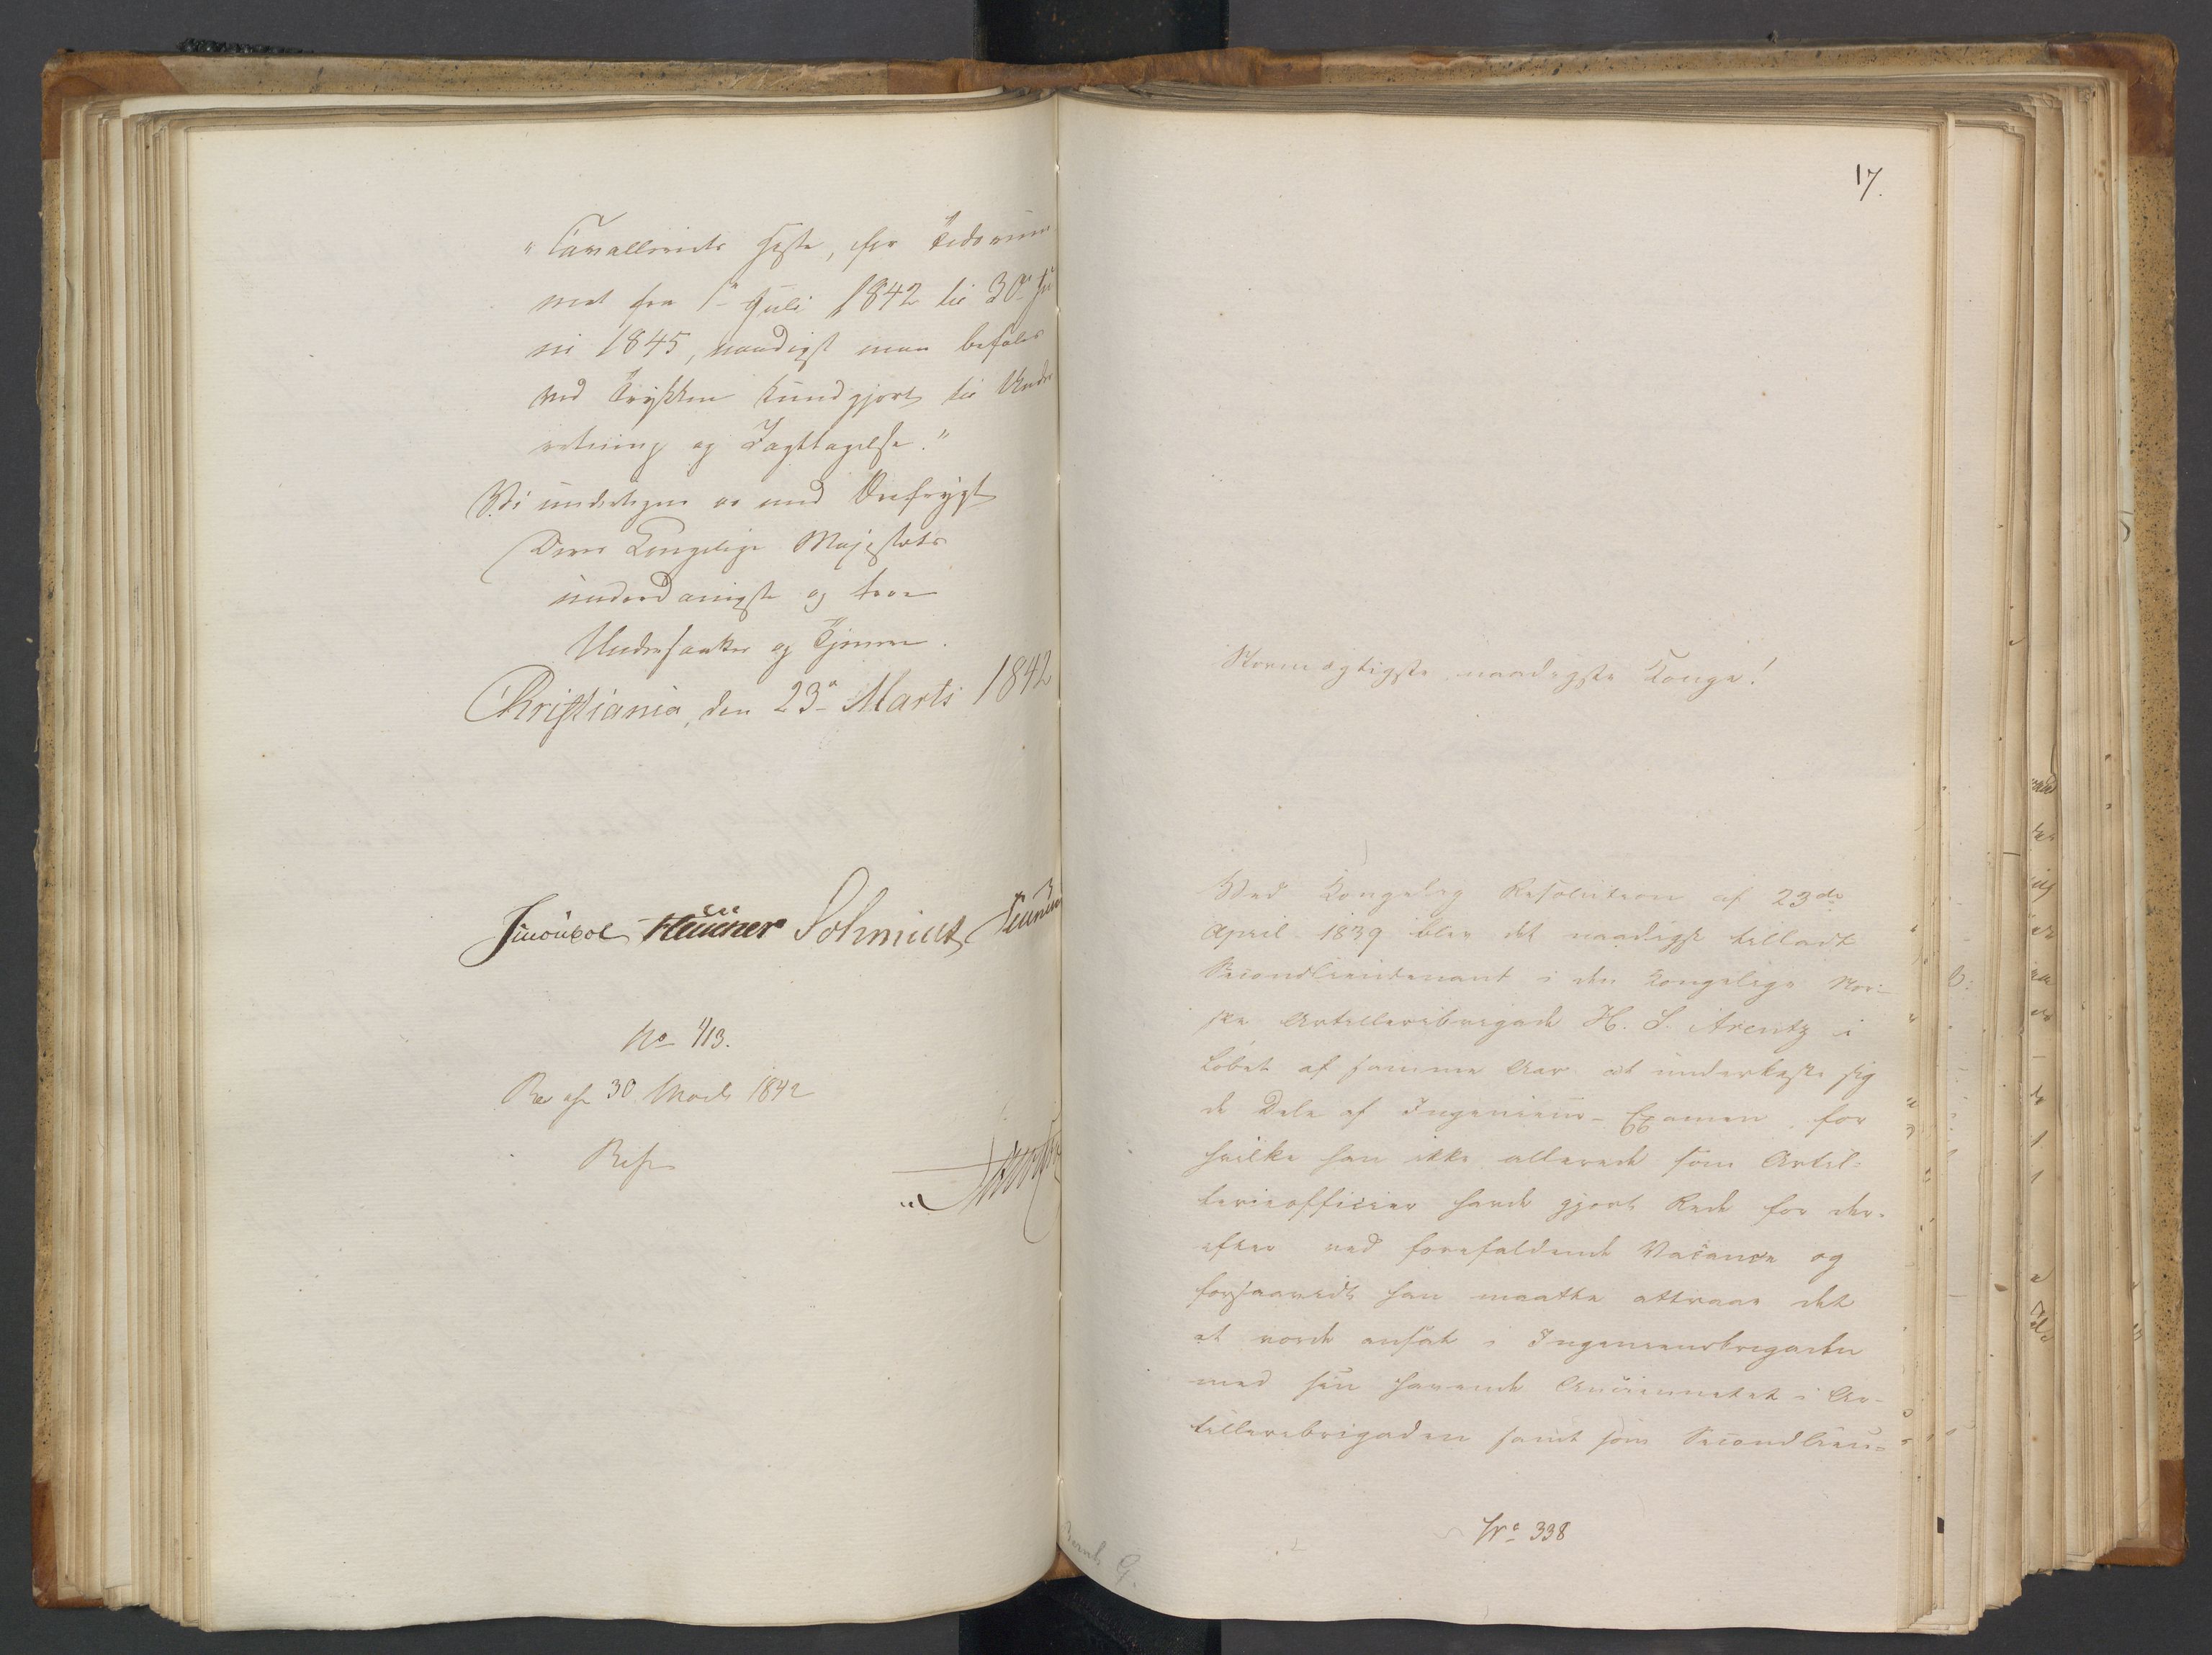 "Cavalleriets Heste, for Tidsrum-
met fra 1ste Juli 1842 til 30te Ju
ni 1845, naadigst maa befales
ved Trykken kundgjort til Under
retning og Iagttagelse."
Vi undertegne os med Ærefrygt
Deres Kongelige Majestæts
underdanigste og troe
Undersaatter og Tjenere.
Christiania, den 23de Marts 1842
Schmidt
No 413.
30 Marts 1842
17.
Stormægtigste, naadigste Konge!
Ved Kongelig Resolution af 23de
April 1839 blev det naadigst tilladt
Secondlieutenant i den Kongelige Nor-
ske Artilleribrigade H. S. Arentz i
Løbet af samme Aar at underkaste sig
de Dele af Ingenieur-Examen, for
hvilke han ikke allerede som Artil-
lerieofficier havde gjort Rede for der-
efter ved forefaldende Vacance og
forsaavidt han maatte attraae det
at vorde ansat i Ingenieurbrigaden
med sin havende Anciennetet i Ar-
tilleribrigaden samt som Secondlieu-
No 338